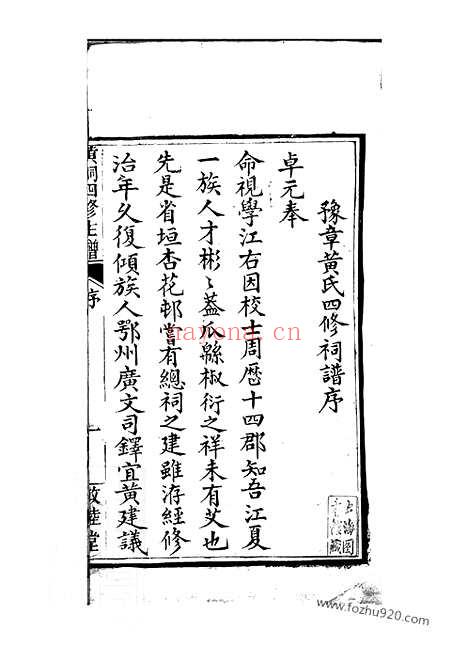 豫章黃氏四修祠譜序
卓元奉
命視學江右因校士周歷十四郡知吾江夏
一族人才彬彬蓋瓜緜椒衍之祥未有艾也
先是省垣杏花邨嘗有總祠之建雖洊經修
治年久復傾族人鄂州廣文司鐸宜黃建議
黃祠四修主譜
序
一
敦睦堂
nayona.cn
www.fozhu920.com